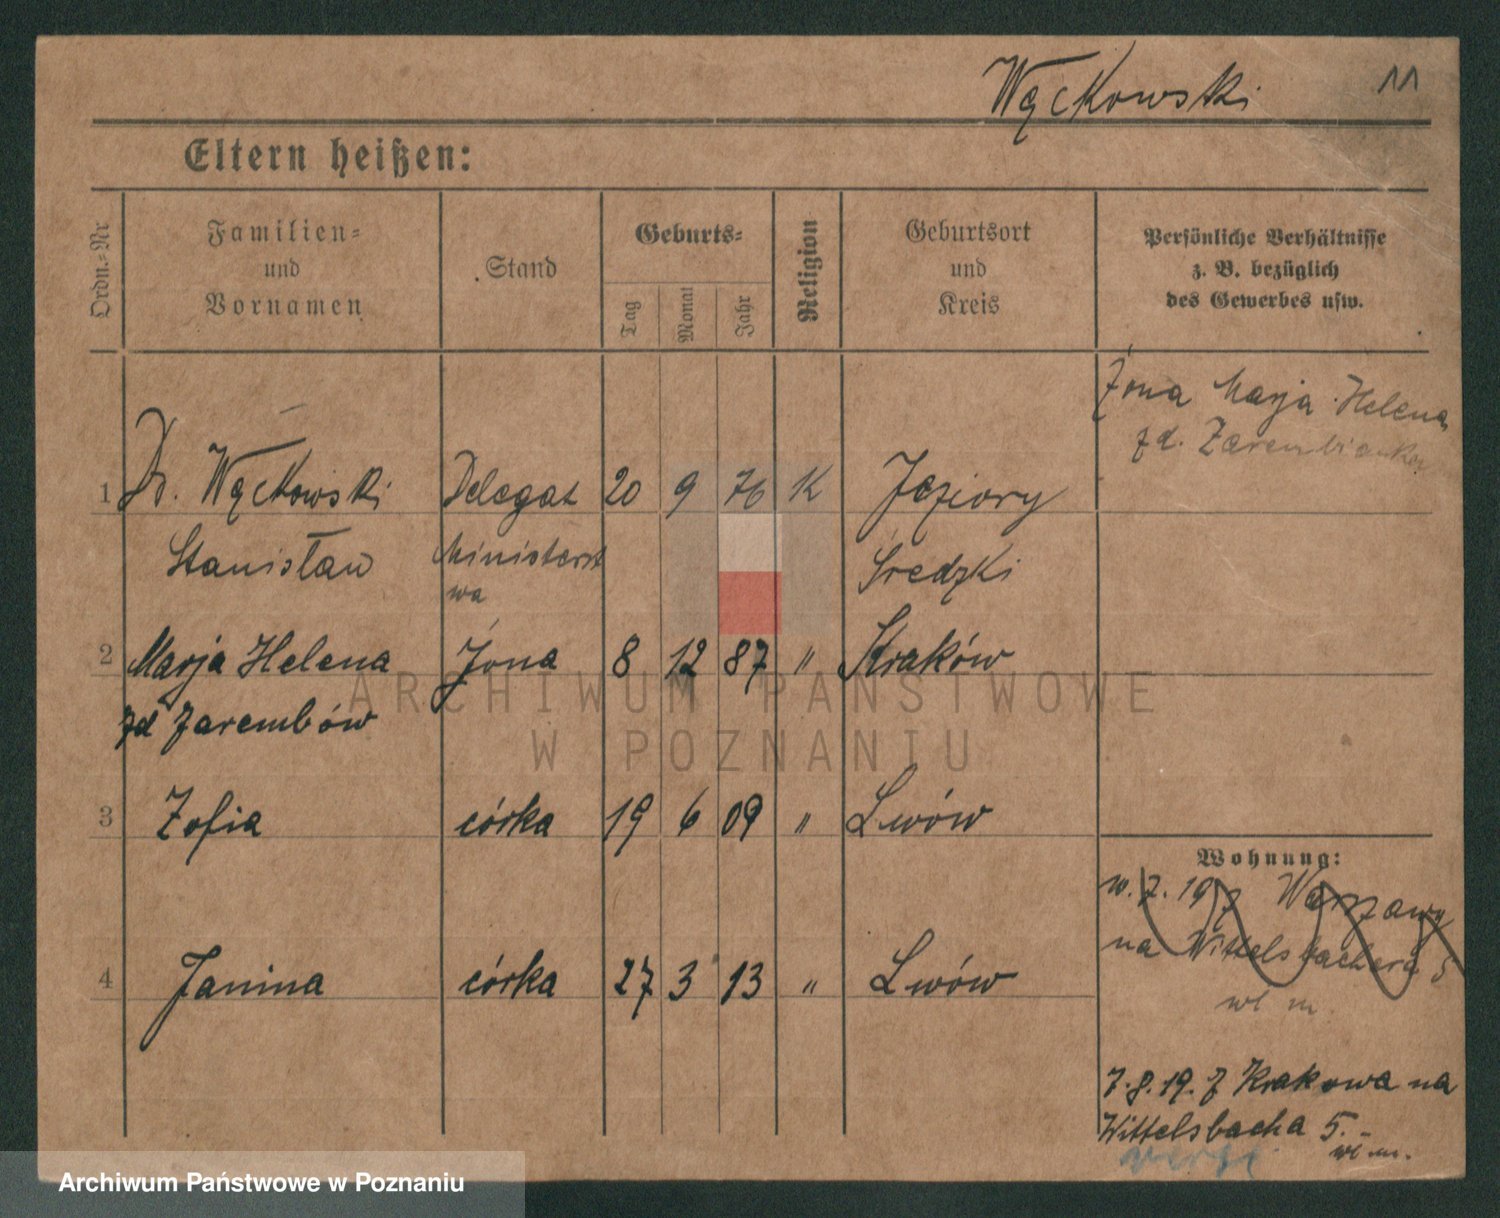 Wąckowski
11
Eltern heißen:
Ordn.-Nr
Familien-
und
Vornamen
Stand
Geburts-
Tag
Monat
Jahr
Religion
Geburtsort
und
Kreis
Persönliche Verhältnisse
z. B. bezüglich
des Gewerbes usw.
Żona Marja Helena
zd.
1 Dr. Wąckowski Delegat 20 9 76 K Jeziory
Stanisław Ministerst Średzki
wa
2 Marja Helena żona 8 12 87 " Kraków
zd Zarembów
3 Zofia córka 19 6 09 " Lwów
4 Janina córka 27 3 13 " Lwów
Wohnung:
w. 7. 19 z Warszawy
na Wittelsbachera 5
wł m.
7.8.19. z Krakowa na
Wittelsbacha 5.-
wł m.
ARCHIWUM PAŃSTWOWE
W POZNANIU
Archiwum Państwowe w Poznaniu